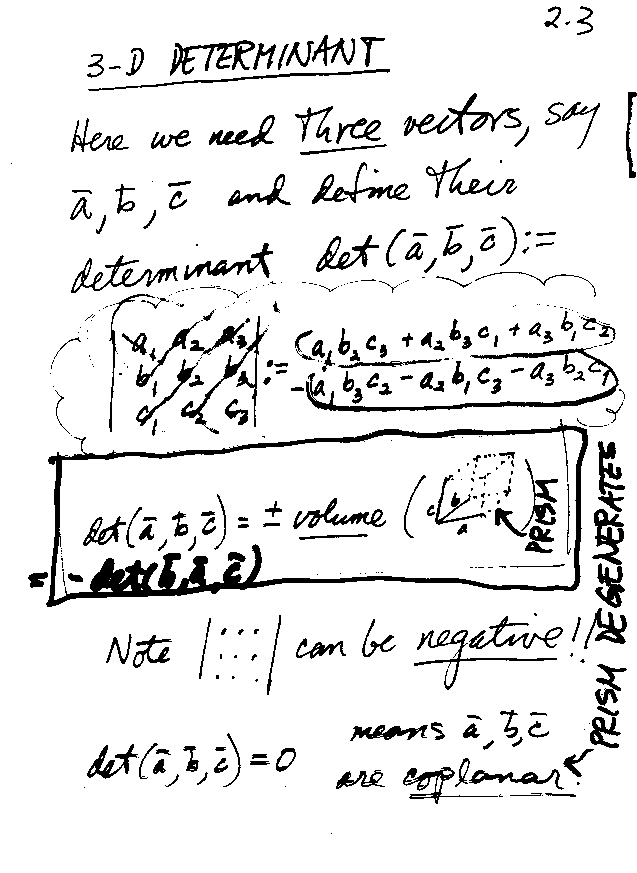 2.3
3-D DETERMINANT
Here we need three vectors, say
ā, b̄, c̄ and define their
determinant det(ā, b̄, c̄) :=
|a₁ a₂ a₃| := a₁b₂c₃ + a₂b₃c₁ + a₃b₁c₂
|b₁ b₂ b₃| - a₁b₃c₂ - a₂b₁c₃ - a₃b₂c₁
|c₁ c₂ c₃|
det(ā, b̄, c̄) = ± volume ( c b a )
PRISM
= - det(b̄, ā, c̄)
Note |:::| can be negative!!
det(ā, b̄, c̄) = 0 means ā, b̄, c̄
are coplanar.
PRISM DEGENERATES